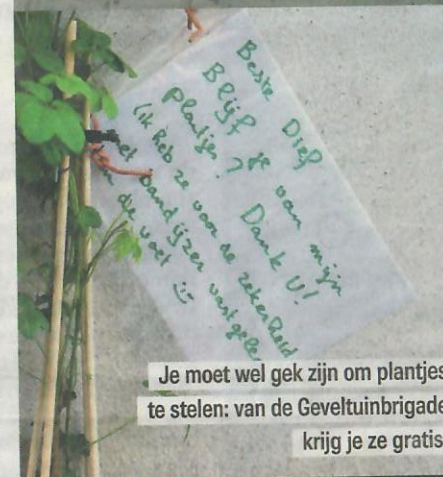 Beste Dief
Blijf je van mijn
plantjes? Dank U!
(ik heb ze voor de zekerheid
met bandijzer vastgele
die voet :)
Je moet wel gek zijn om plantjes
te stelen: van de Geveltuinbrigade
krijg je ze gratis